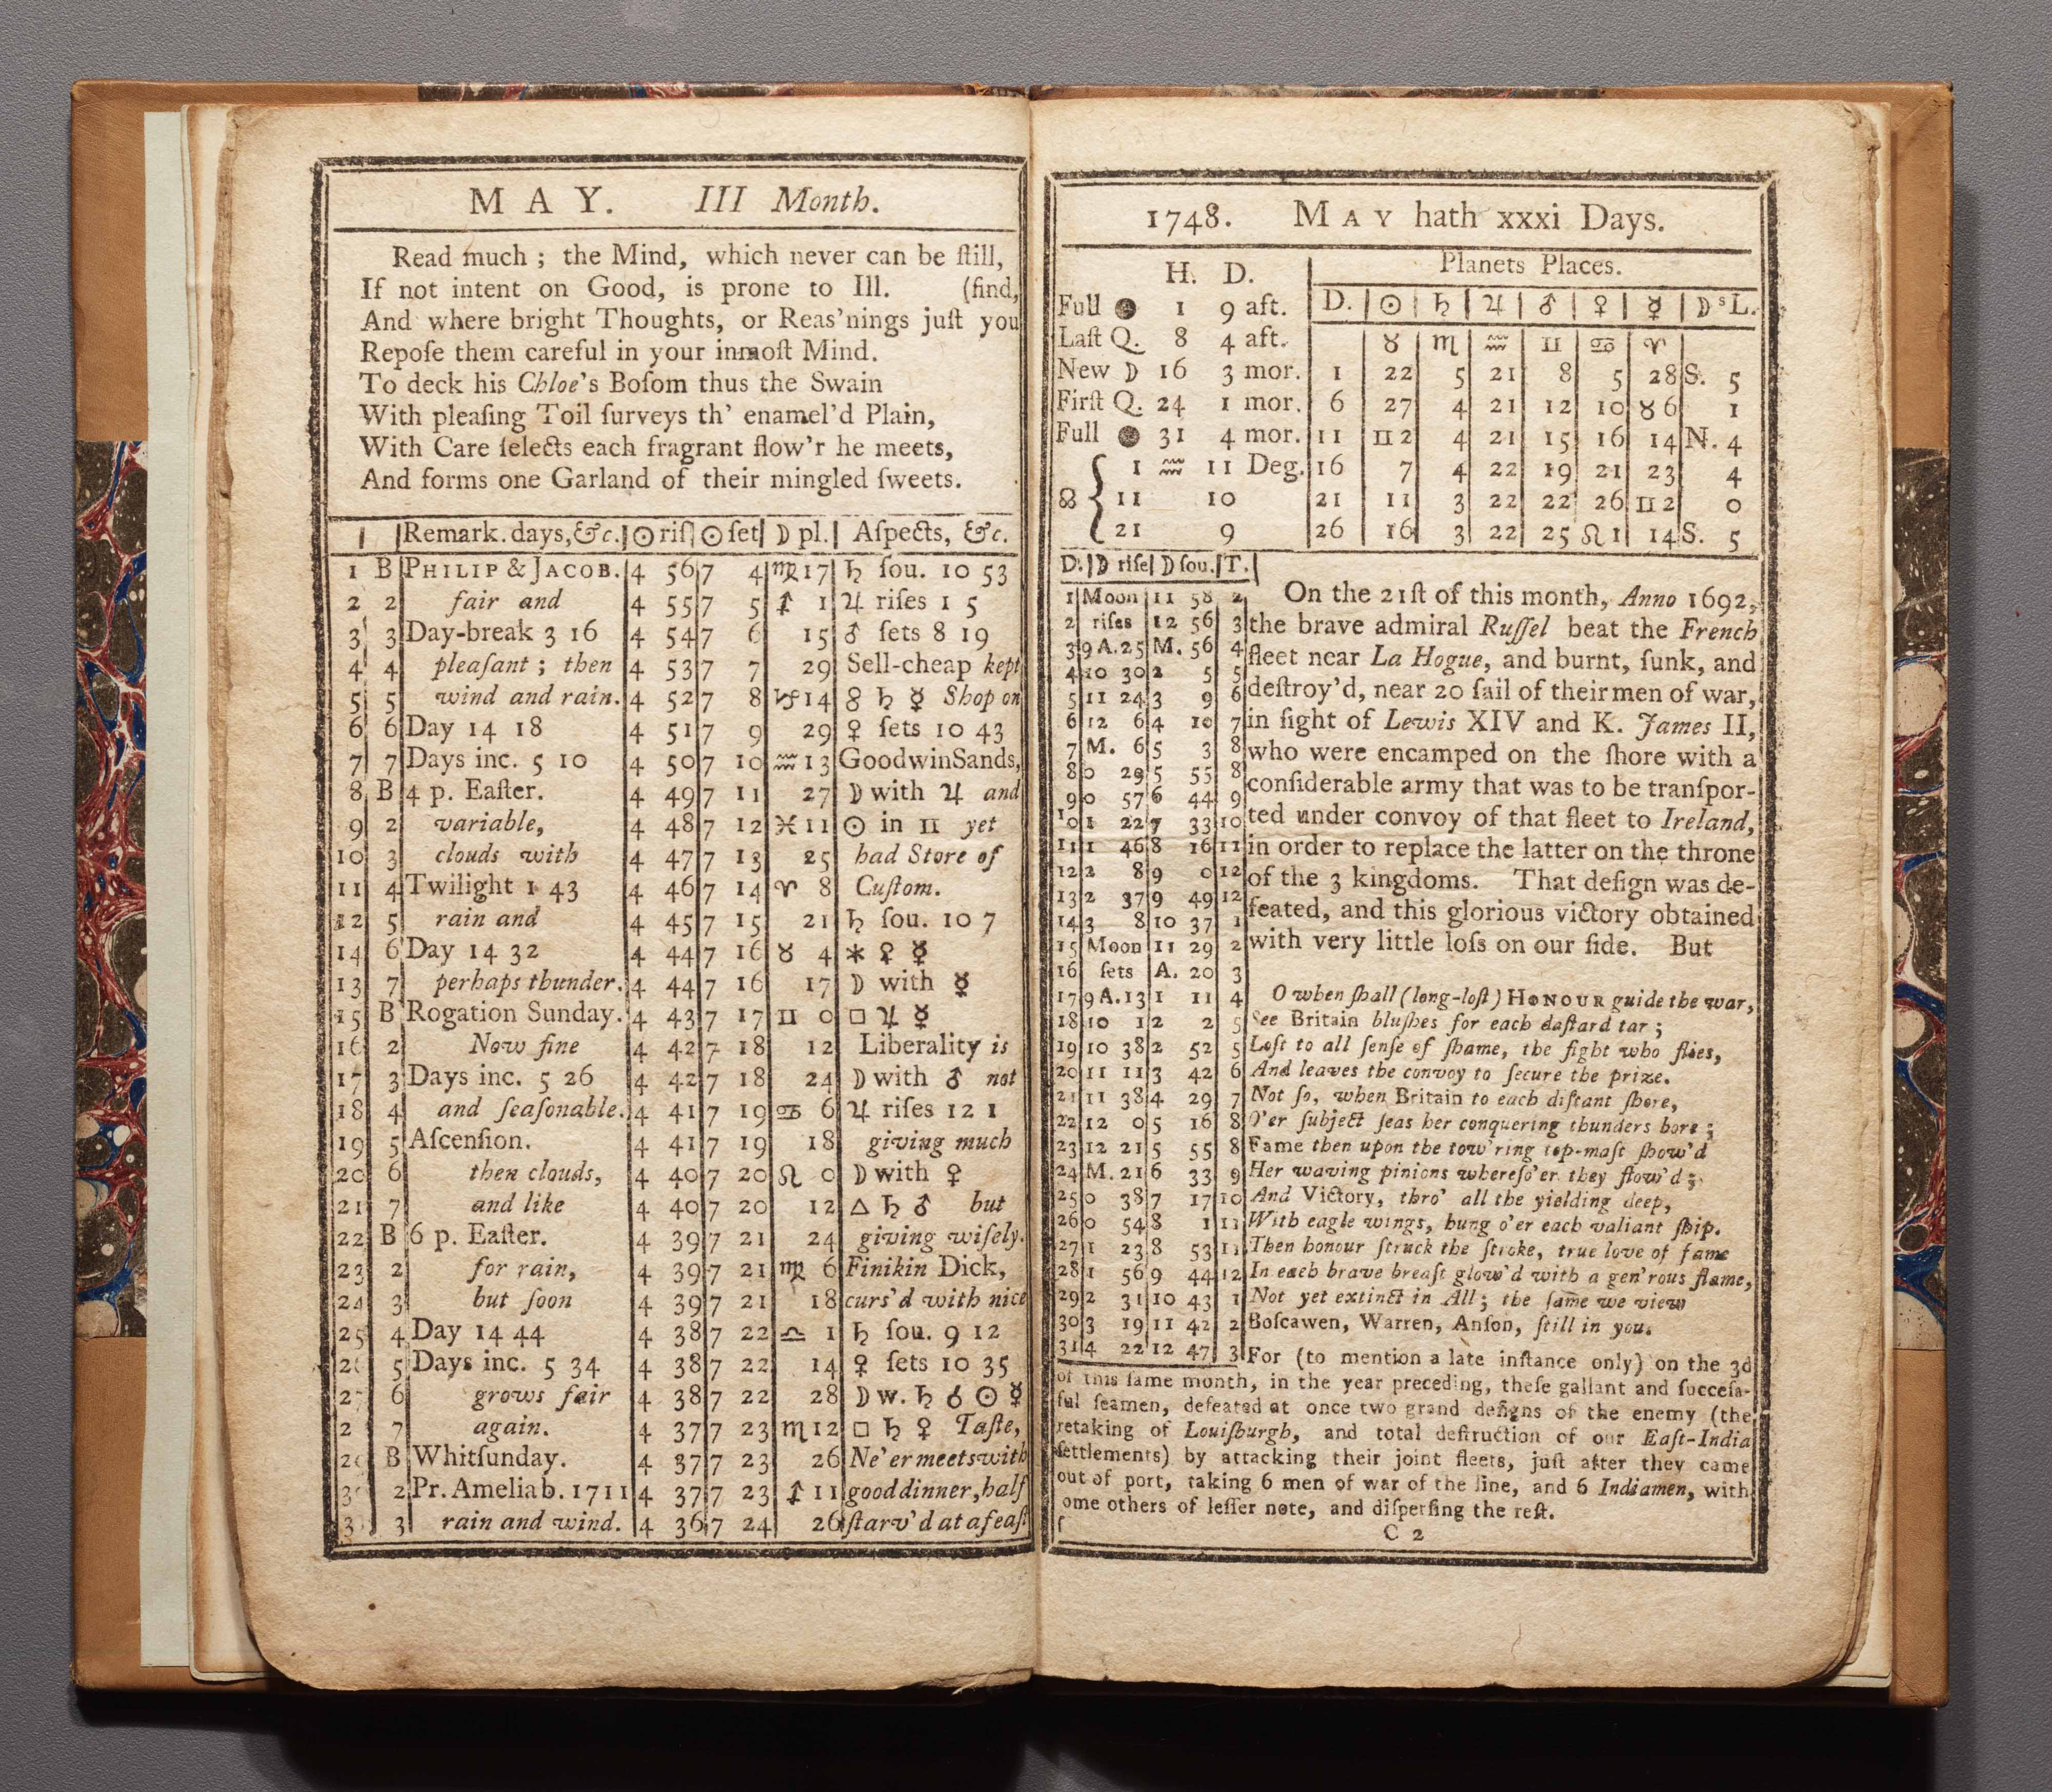 M A Y. III Month.
Read much ; the Mind, which never can be ſtill,
If not intent on Good, is prone to Ill. (find,
And where bright Thoughts, or Reas'nings juſt you
Repoſe them careful in your inmoſt Mind.
To deck his Chloe's Boſom thus the Swain
With pleaſing Toil ſurveys th' enamel'd Plain,
With Care ſelects each fragrant flow'r he meets,
And forms one Garland of their mingled ſweets.
Remark. days, &c. ☉ riſ ☉ ſet ☽ pl. Aſpects, &c.
1 B PHILIP & JACOB. 4 56 7 4 ♍ 17 ♄ ſou. 10 53
2 2 fair and 4 55 7 5 ♐ 1 ♃ riſes 1 5
3 3 Day-break 3 16 4 54 7 6 15 ♂ ſets 8 19
4 4 pleaſant ; then 4 53 7 7 29 Sell-cheap kept
5 5 wind and rain. 4 52 7 8 ♑ 14 ☍ ♄ ☿ Shop on
6 6 Day 14 18 4 51 7 9 29 ♀ ſets 10 43
7 7 Days inc. 5 10 4 50 7 10 ♒ 13 Goodwin Sands,
8 B 4 p. Eaſter. 4 49 7 11 27 ☽ with ♃ and
9 2 variable, 4 48 7 12 ♓ 11 ☉ in ♊ yet
10 3 clouds with 4 47 7 13 25 had Store of
11 4 Twilight 1 43 4 46 7 14 ♈ 8 Cuſtom.
12 5 rain and 4 45 7 15 21 ♄ ſou. 10 7
14 6 Day 14 32 4 44 7 16 ♉ 4 ⚹ ♀ ☿
13 7 perhaps thunder. 4 44 7 16 17 ☽ with ☿
15 B Rogation Sunday. 4 43 7 17 ♊ 0 □ ♃ ☿
16 2 Now fine 4 42 7 18 12 Liberality is
17 3 Days inc. 5 26 4 42 7 18 24 ☽ with ♂ not
18 4 and ſeaſonable. 4 41 7 19 ♋ 6 ♃ riſes 12 1
19 5 Aſcenſion. 4 41 7 19 18 giving much
20 6 then clouds, 4 40 7 20 ♌ 0 ☽ with ♀
21 7 and like 4 40 7 20 12 △ ♄ ♂ but
22 B 6 p. Eaſter. 4 39 7 21 24 giving wiſely.
23 2 for rain, 4 39 7 21 ♍ 6 Finikin Dick,
24 3 but ſoon 4 39 7 21 18 curs'd with nice
25 4 Day 14 44 4 38 7 22 ♎ 1 ♄ ſou. 9 12
26 5 Days inc. 5 34 4 38 7 22 14 ♀ ſets 10 35
27 6 grows fair 4 38 7 22 28 ☽ w. ♄ ☌ ☉ ☿
2 7 again. 4 37 7 23 ♏ 12 □ ♄ ♀ Taſte,
29 B Whitſunday. 4 37 7 23 26 Ne'er meets with
3 2 Pr. Amelia b. 1711 4 37 7 23 ♐ 11 good dinner, half
3 3 rain and wind. 4 36 7 24 26 ſtarv'd at a feaſt
1748. M A Y hath xxxi Days.
H. D. Planets Places.
Full ● 1 9 aft. D. ☉ ♄ ♃ ♂ ♀ ☿ ☽ s L.
Laſt Q. 8 4 aft. ♉ ♏ ♒ ♊ ♋ ♈
New ☽ 16 3 mor. 1 22 5 21 8 5 28 S. 5
Firſt Q. 24 1 mor. 6 27 4 21 12 10 ♉ 6 1
Full ● 31 4 mor. 11 ♊ 2 4 21 15 16 14 N. 4
1 ♒ 11 Deg. 16 7 4 22 19 21 23 4
☊ { 11 10 21 11 3 22 22 26 ♊ 2 0
21 9 26 16 3 22 25 ♌ 1 14 S. 5
D. ☽ riſe ☽ ſou. T.
1 Moon 11 58 2
2 riſes 12 56 3
3 9 A. 25 M. 56 4
4 10 30 2 5 5
5 11 24 3 9 6
6 12 6 4 10 7
7 M. 6 5 3 8
8 0 29 5 55 8
9 0 57 6 44 9
10 1 22 7 33 10
11 1 46 8 16 11
12 2 8 9 0 12
13 2 37 9 49 12
14 3 8 10 37 1
15 Moon 11 29 2
16 ſets A. 20 3
17 9 A. 13 1 11 4
18 10 1 2 2 5
19 10 38 2 52 5
20 11 11 3 42 6
21 11 38 4 29 7
22 12 0 5 16 8
23 12 21 5 55 8
24 M. 21 6 33 9
25 0 38 7 17 10
26 0 54 8 1 11
27 1 23 8 53 11
28 1 56 9 44 12
29 2 31 10 43 1
30 3 19 11 42 2
31 4 22 12 47 3
On the 21ſt of this month, Anno 1692,
the brave admiral Ruſſel beat the French
fleet near La Hogue, and burnt, ſunk, and
deſtroy'd, near 20 ſail of their men of war,
in ſight of Lewis XIV and K. James II,
who were encamped on the ſhore with a
conſiderable army that was to be tranſpor-
ted under convoy of that fleet to Ireland,
in order to replace the latter on the throne
of the 3 kingdoms. That deſign was de-
feated, and this glorious victory obtained
with very little loſs on our ſide. But
O when ſhall (long-loſt) HONOUR guide the war,
See Britain bluſhes for each daſtard tar ;
Loſt to all ſenſe of ſhame, the fight who flies,
And leaves the convoy to ſecure the prize.
Not ſo, when Britain to each diſtant ſhore,
O'er ſubject ſeas her conquering thunders bore ;
Fame then upon the tow'ring top-maſt ſhow'd
Her waving pinions whereſo'er they flow'd ;
And Victory, thro' all the yielding deep,
With eagle wings, hung o'er each valiant ſhip.
Then honour ſtruck the ſtroke, true love of fame
In each brave breaſt glow'd with a gen'rous flame,
Not yet extinct in All ; the ſame we view
Boſcawen, Warren, Anſon, ſtill in you.
For (to mention a late inſtance only) on the 3d
of this ſame month, in the year preceding, theſe gallant and ſucceſs-
ful ſeamen, defeated at once two grand deſigns of the enemy (the
retaking of Louiſburgh, and total deſtruction of our Eaſt-India
ſettlements) by attacking their joint fleets, juſt after they came
out of port, taking 6 men of war of the line, and 6 Indiamen, with
ome others of leſſer note, and diſperſing the reſt.
ſ
C 2